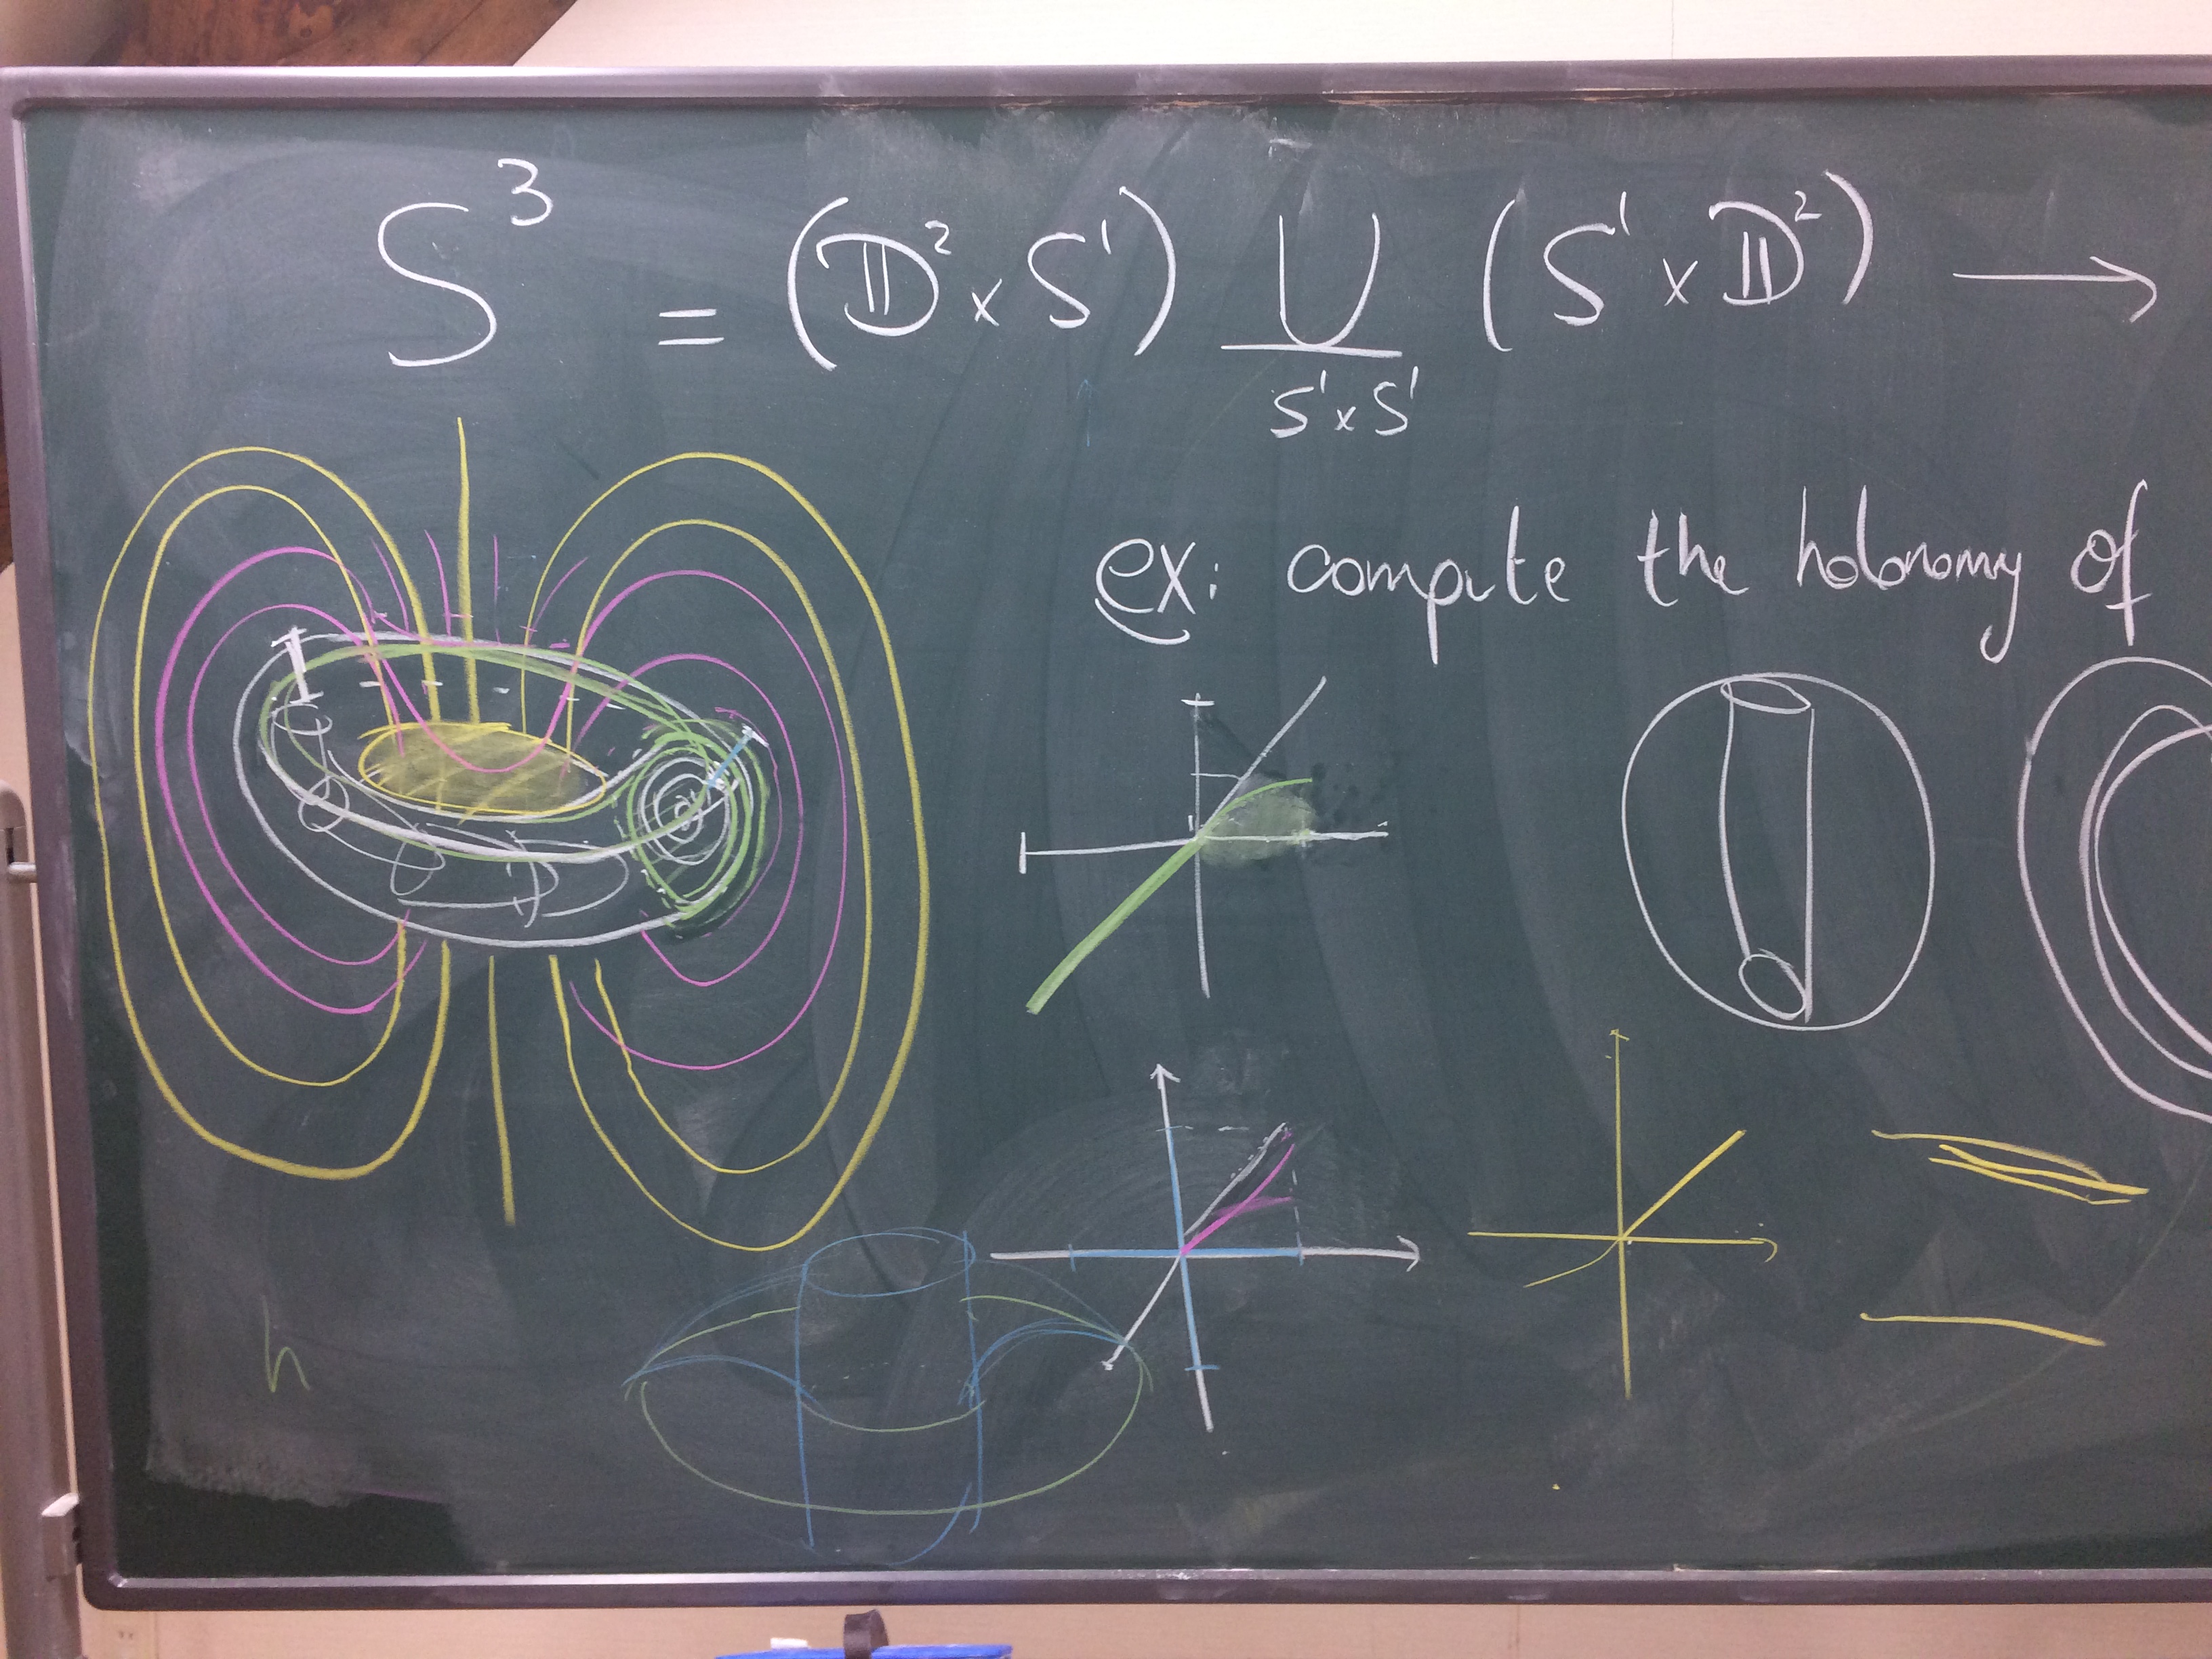 S³ = (𝔻² × S¹) ∪ (S¹ × 𝔻²) →
S¹ × S¹
ex: compute the holonomy of
h